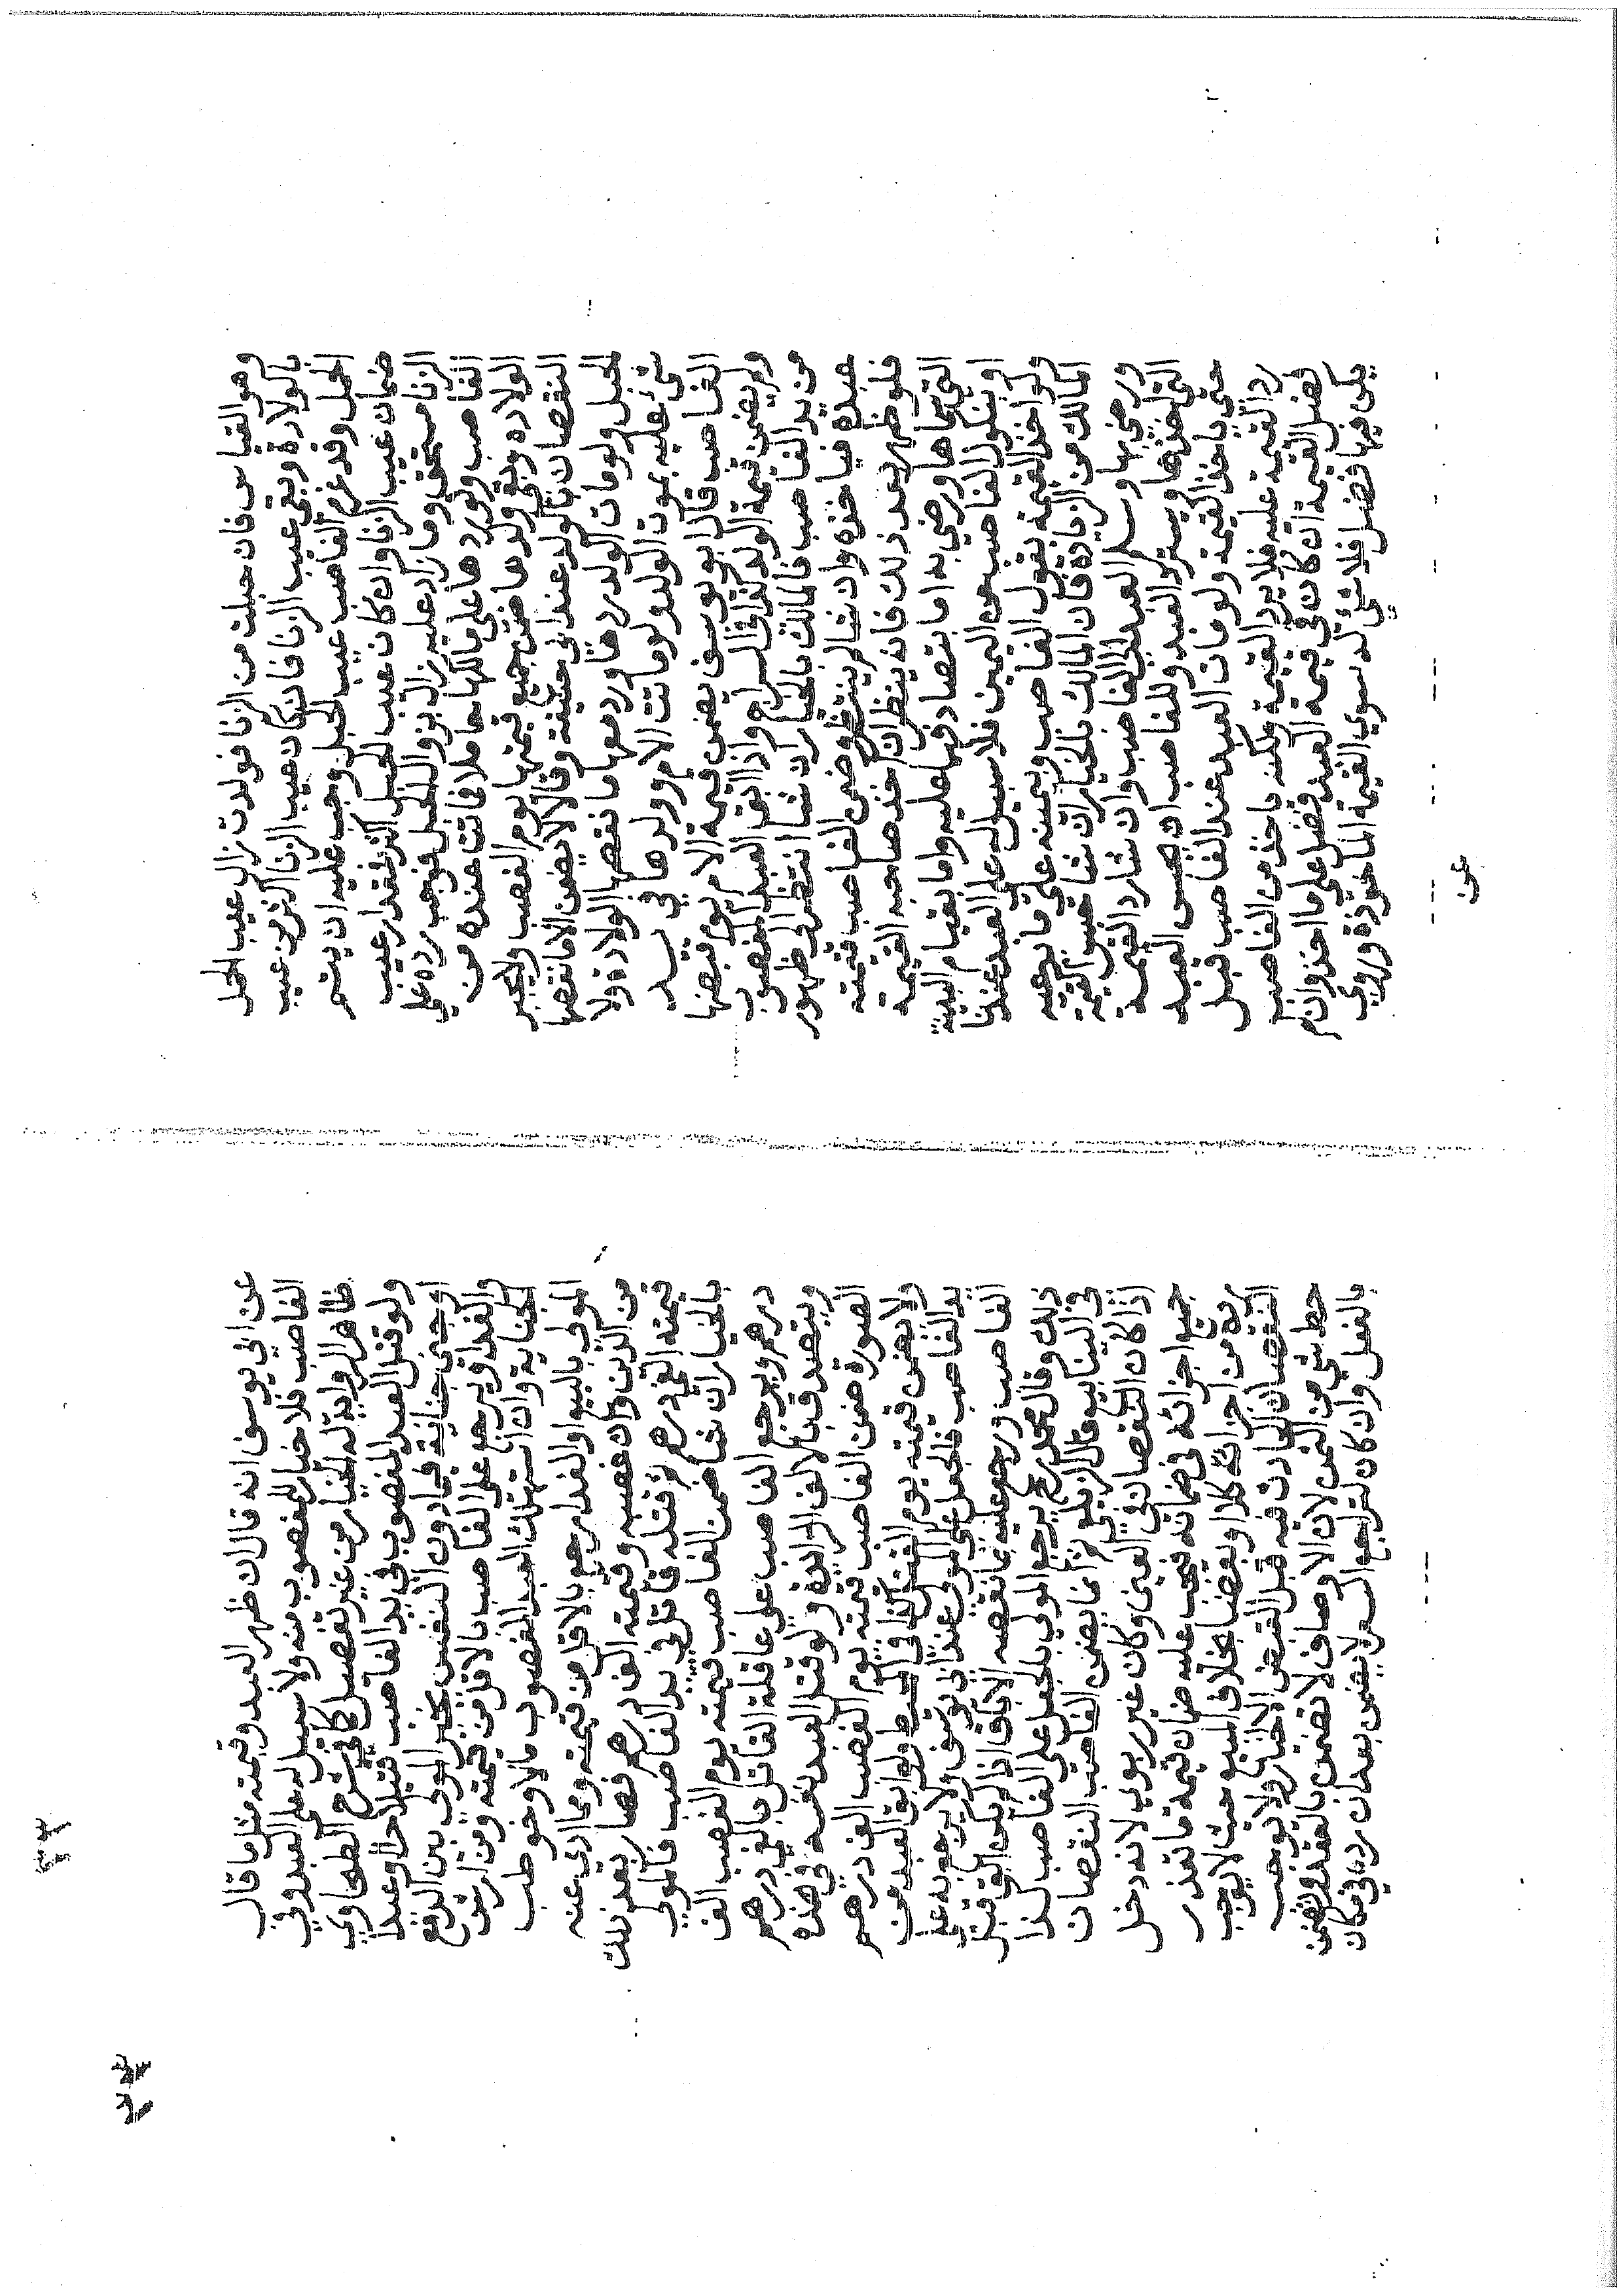 وهو القياس فان حبلت من الزنا فولدت زال عيب الحمل
بالولادة وبقي عيب الزنا فان كان عيب الزنا اكثر من عيب
الحمل وقد غرم الغاصب عيب الحبل وجب عليه ان يتم
ضمان عيب الزنا وان كان عيب الحبل اكثر فقدار عيب
الزنا مستحق وما زاد عليه زال بزوال الحبل فوجب رده علي
الغاصب ولو ردها علي مالكها حاملا فماتت عنده من
الولادة وبقي ولدها ضمن جميع قيمتها يوم الغصب ولا يجبر
النقصان بالولد عند ابي حنيفة وقالا لا يضمن الا ما نقصها
الحبل ولو مات الولد ردها ورد معها ما نقصها الولادة ولا
شئ عليه بموت الولد ولو ماتت الام وولدها في يد
الغاصب قال ابو يوسف يضمن قيمة الام يوم قبضها
ولم يضمن قيمة الولد كذا في السراج واذا ابق العبد المغصوب
من يد الغاصب فالمالك بالخيار ان شا انتظر الي ظهور
عبده فيأخذه وان شا لم ينتظر وضمن الغاصب قيمته
فلو ظهر بعد ذلك فانه ينظر ان اخذ صاحبه القيمة
التي سماها ورضي به اما بتصادقهما عليه واما بقيام البينة
او بنكول الغاصب عن اليمين فلا سبيل له علي العبد عندنا
ولو اخذ القيمة بقول الغاصب وبيمينه علي ما يدعيه
المالك من الزيادة فان المالك بالخيار ان شا حبس القيمة
ورضي بها وسلم العبد الي الغاصب وان شا رد القيمة
التي اخذها ويسترد العبد وللغاصب ان يحبس العبد
حتي ياخذ القيمة ولو مات العبد عند الغاصب قبل
رد القيمة عليه فلا يرد القيمة ولكنه ياخذ من الغاصب
فضل القيمة ان كان في قيمة العبد فضل علي ما اخذ وان لم
يكن فيها فضل فلا شئ له سوي القيمة الماخوذة وروي
عن
عن ابي يوسف انه قال ان ظهر العبد وقيمته مثل ما قال
الغاصب فلا خيار للمغصوب منه ولا سبيل له علي العبد وفي
ظاهر الرواية له الخيار من غير تفصيل كما في شرح الطحاوي
ولو قتل العبد المغصوب في يد الغاصب قتيلا حرا او عبدا
او جني جناية فيما دون النفس يخير المولي بين الدفع
والفدا ويرجع علي الغاصب بالاقل من قيمته ومن ارش
الجناية وان استهلك العبد المغصوب مالا وخوطب
المولي بالبيع او الفدا رجع بالاقل من قيمته ومما ادي عنه
من الدين وان غصبه وقيمته الف درهم فصار بعد ذلك
قيمته الفي درهم ثم قتله قاتل في يد الغاصب فالمولي
بالخيار ان شا ضمن الغاصب قيمته يوم الغصب الف
درهم ويرجع الغاصب علي عاقلة القاتل بالفي درهم
ويتصدق بالالف الزايدة ولو قتل العبد نفسه في هذه
الصورة ضمن الغاصب قيمته يوم الغصب الف درهم
ولا يضمن قيمته يوم القتل كذا في المبسوط ولو ابق العبد من
يد الغاصب فالجعل علي المولي عند ابي يوسف ولا يرجع به علي
الغاصب ورجع عليه بما نقصه الاباق اذا لم يكن ابق قبل
ذلك وقال محمد رح يرجع المولي بالجعل علي الغاصب كذا
في الينابيع قال الزيلعي ثم انما يضمن الغاصب النقصان
اذا كان النقصان في العين وكان غير ربوي لانه دخل
جميع اجزائه في ضمانه فيجب عليه ضمان قيمة ما تعذر
رده من اجزائه كلا او بعضا بخلاف المبيع حيث لا يوجب
النقصان الحادث فيه قبل القبض الا الخيار ولا يوجب
حط شئ من الثمن لان الاوصاف لا تضمن بالعقد وتضمن
بالفعل وان كان لتراجع السعر لا يضمن بعد ان رد في مكان